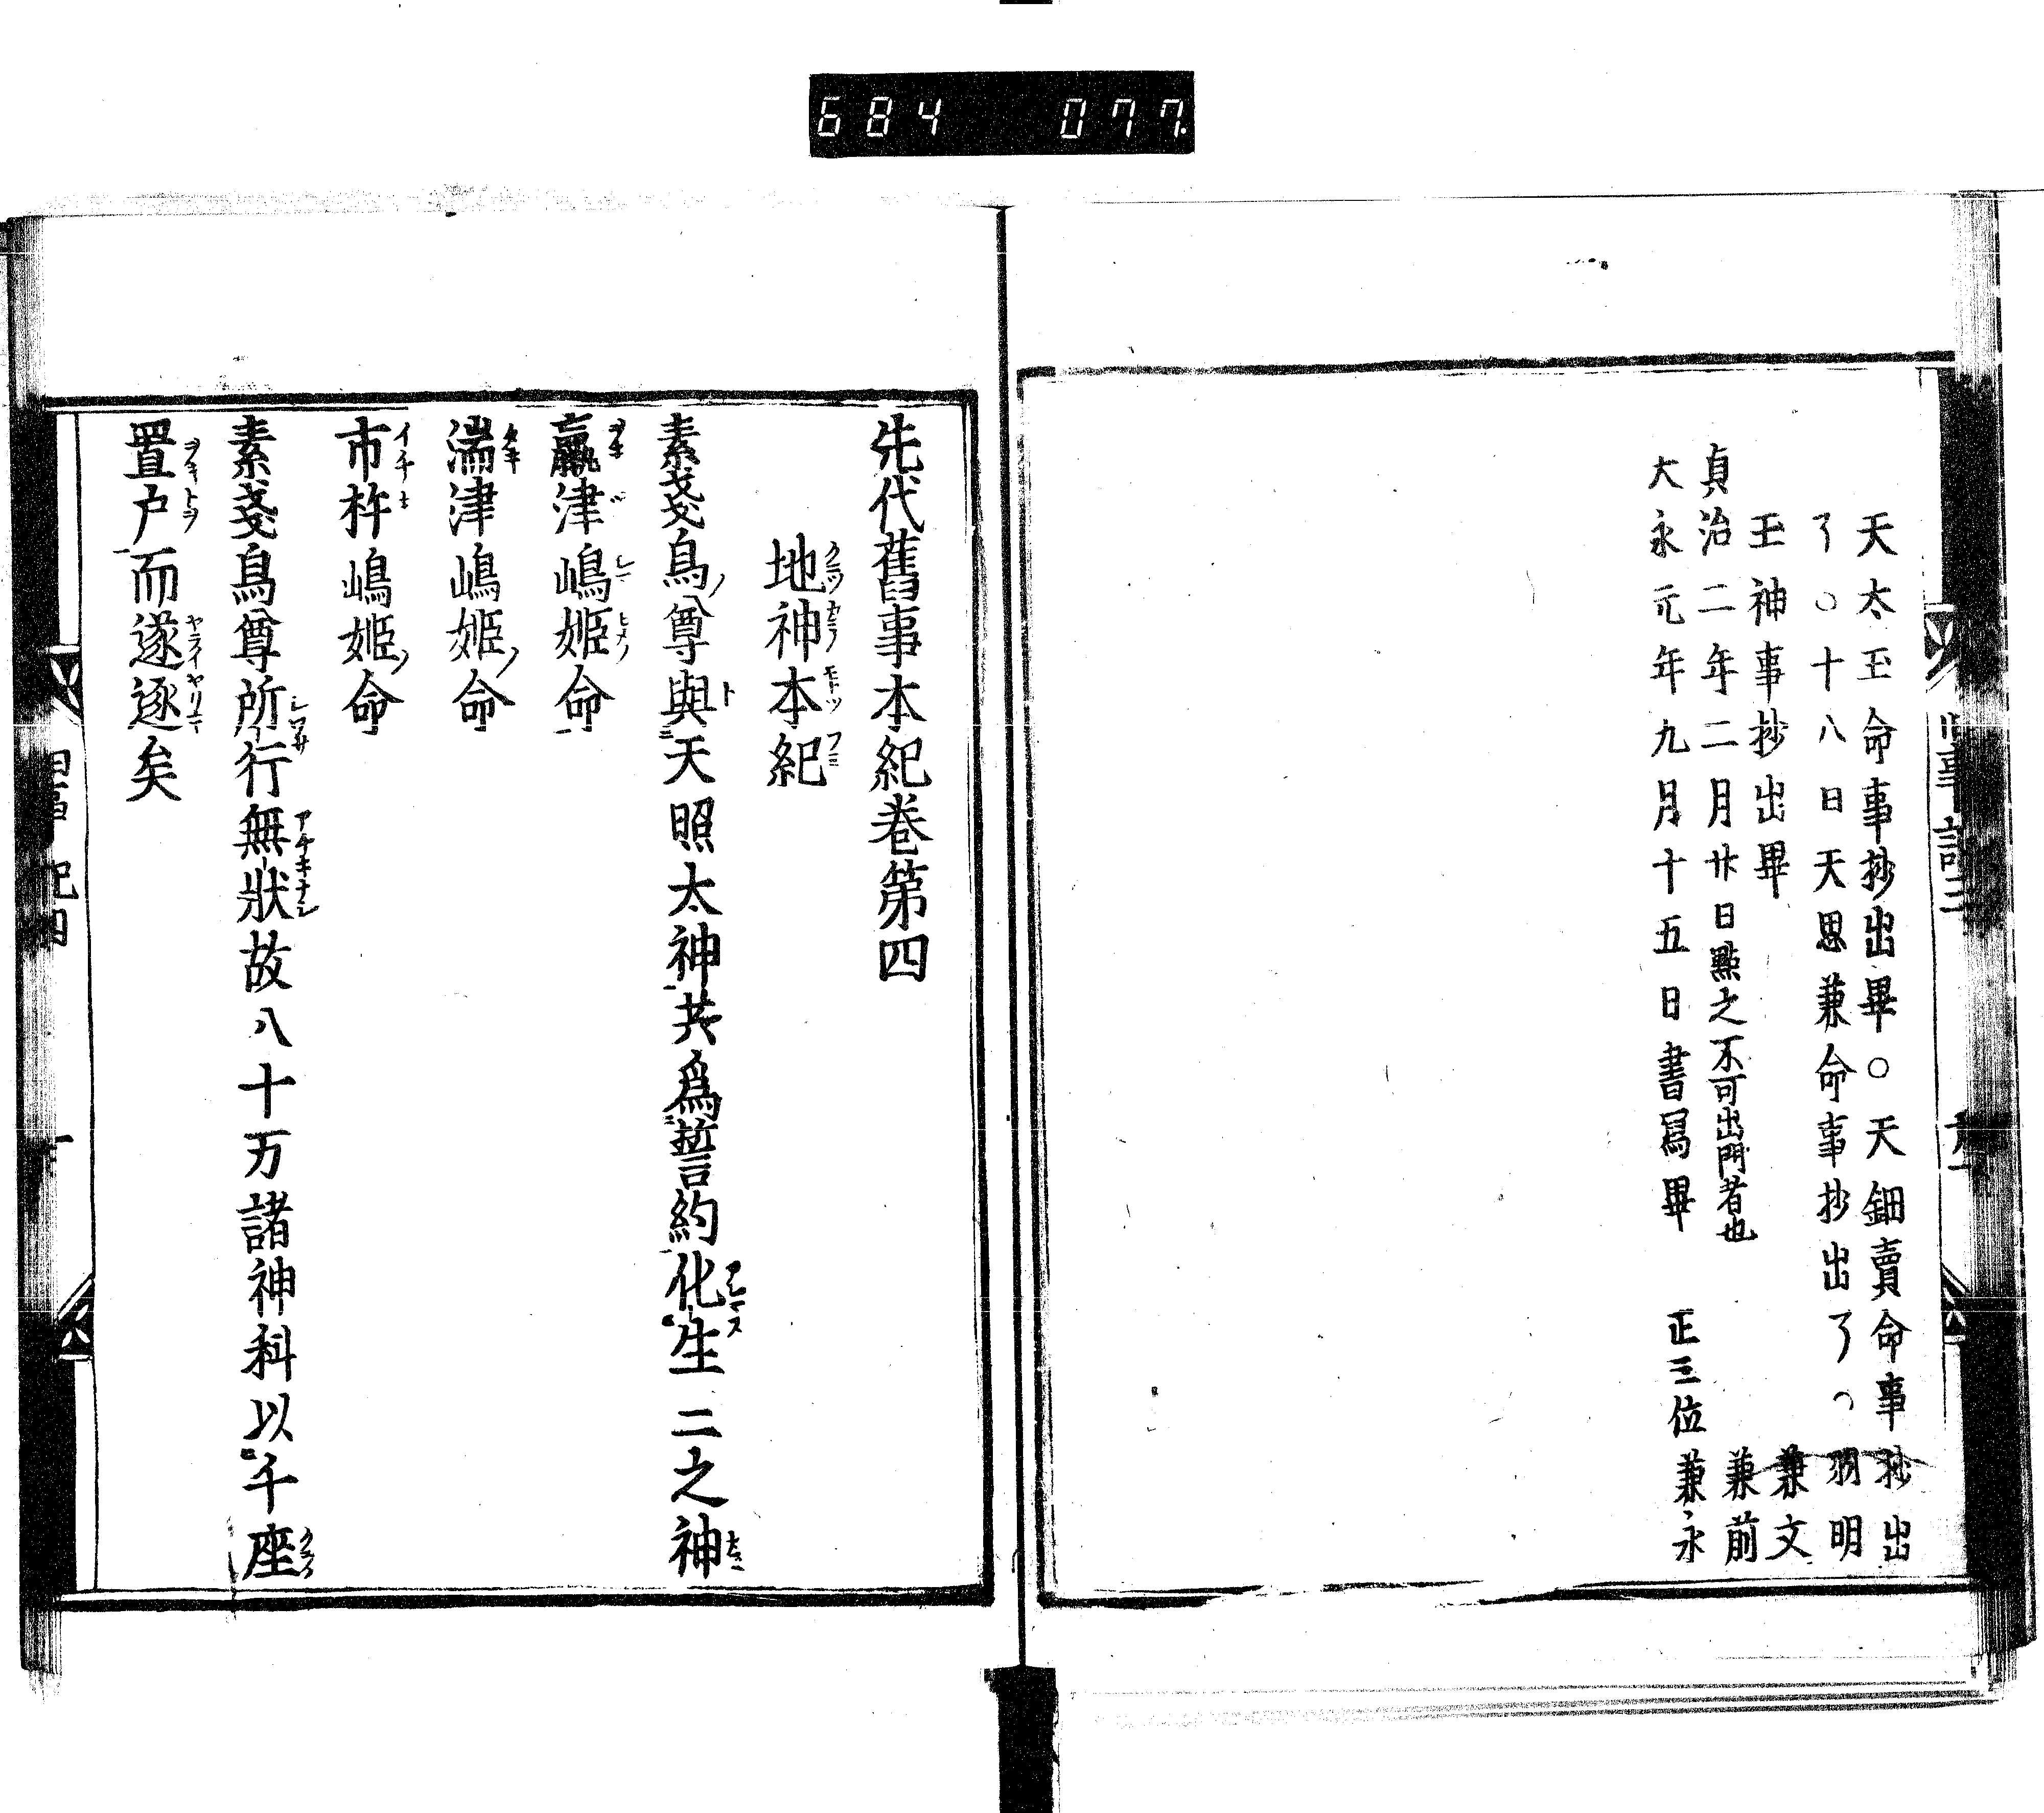 684 077
天太玉命事抄出畢○天鈿賣命事抄出
了○十八日天思兼命事抄出了
玉神事抄出畢 兼文
貞治二年二月廿日點之不可出門者也 兼前
大永元年九月十五日書寫畢 正三位 兼永
先代舊事本紀巻第四
地神本紀
素戔烏尊與天照太神共爲誓約化生三之神
瀛津嶋姫命
湍津嶋姫命
市杵嶋姫命
素戔烏尊所行無狀故八十万諸神科以千座
置户而遂逐矣